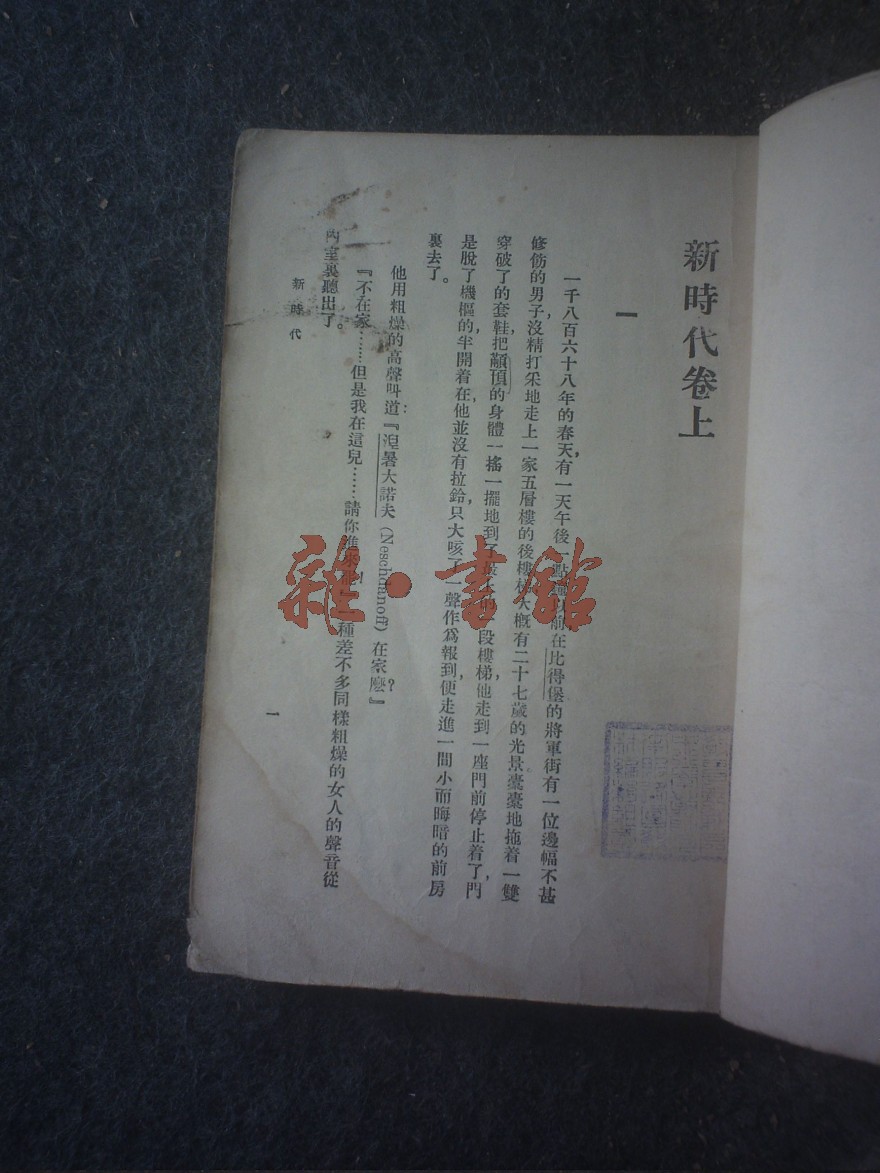 新時代卷上
一
一千八百六十八年的春天,有一天午後一點鐘以前在比得堡的將軍街有一位邊幅不甚
修飭的男子沒精打采地走上一家五層樓的後樓梯大概有二十七歲的光景橐橐地拖着一雙
穿破了的套鞋,把顢頇的身體一搖一擺地到了最上的一段樓梯,他走到一座門前停止着了,門
是脫了機樞的,半開着在,他並沒有拉鈴,只大咳了一聲作爲報到,便走進一間小而晦暗的前房
裏去了。
他用粗燥的高聲叫道:『湼暑大諾夫(Neschdanoff)在家麼?』
『不在家……但是我在這兒……請你進來罷』一種差不多同樣粗燥的女人的聲音從
內室裏聽出了。
新時代
一
雜·書館